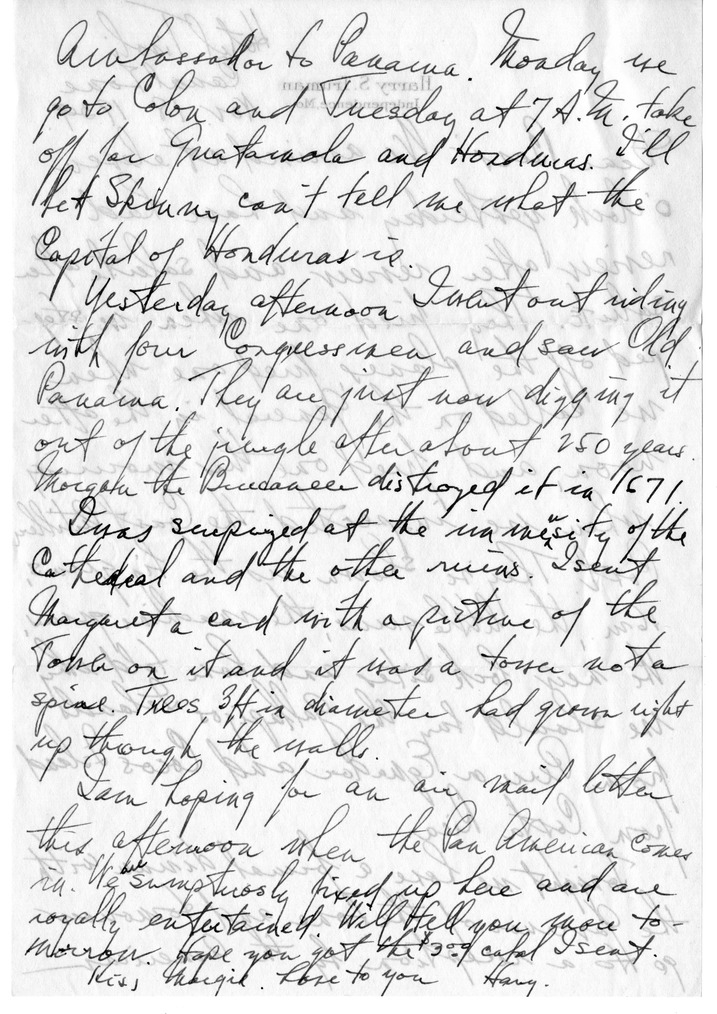 Ambassador to Panama. Monday we
go to Colon and Tuesday at 7 A.M. take
off for Guatamola and Honduras. I'll
bet Skinny can't tell me what the
Capital of Honduras is.
Yesterday afternoon I went out riding
with four Congressmen and saw Old
Panama. They are just now digging it
out of the jungle after about 250 years.
Morgan the Buccaneer distroyed it in 1671.
I was surprized at the immensity of the
Cathedral and the other ruins. I sent
Margaret a card with a picture of the
Tower on it and it was a tower not a
spire. Trees 3 ft in diameter had grown right
up through the walls.
I am hoping for an air mail letter
this afternoon when the Pan American comes
in. We are sumptuosly fixed up here and are
royally entertained. Will tell you more to-
morrow. Hope you got the $3.00 I sent.
Kiss Margie. Love to you Harry.
Harry S. Truman
Independence, Mo.